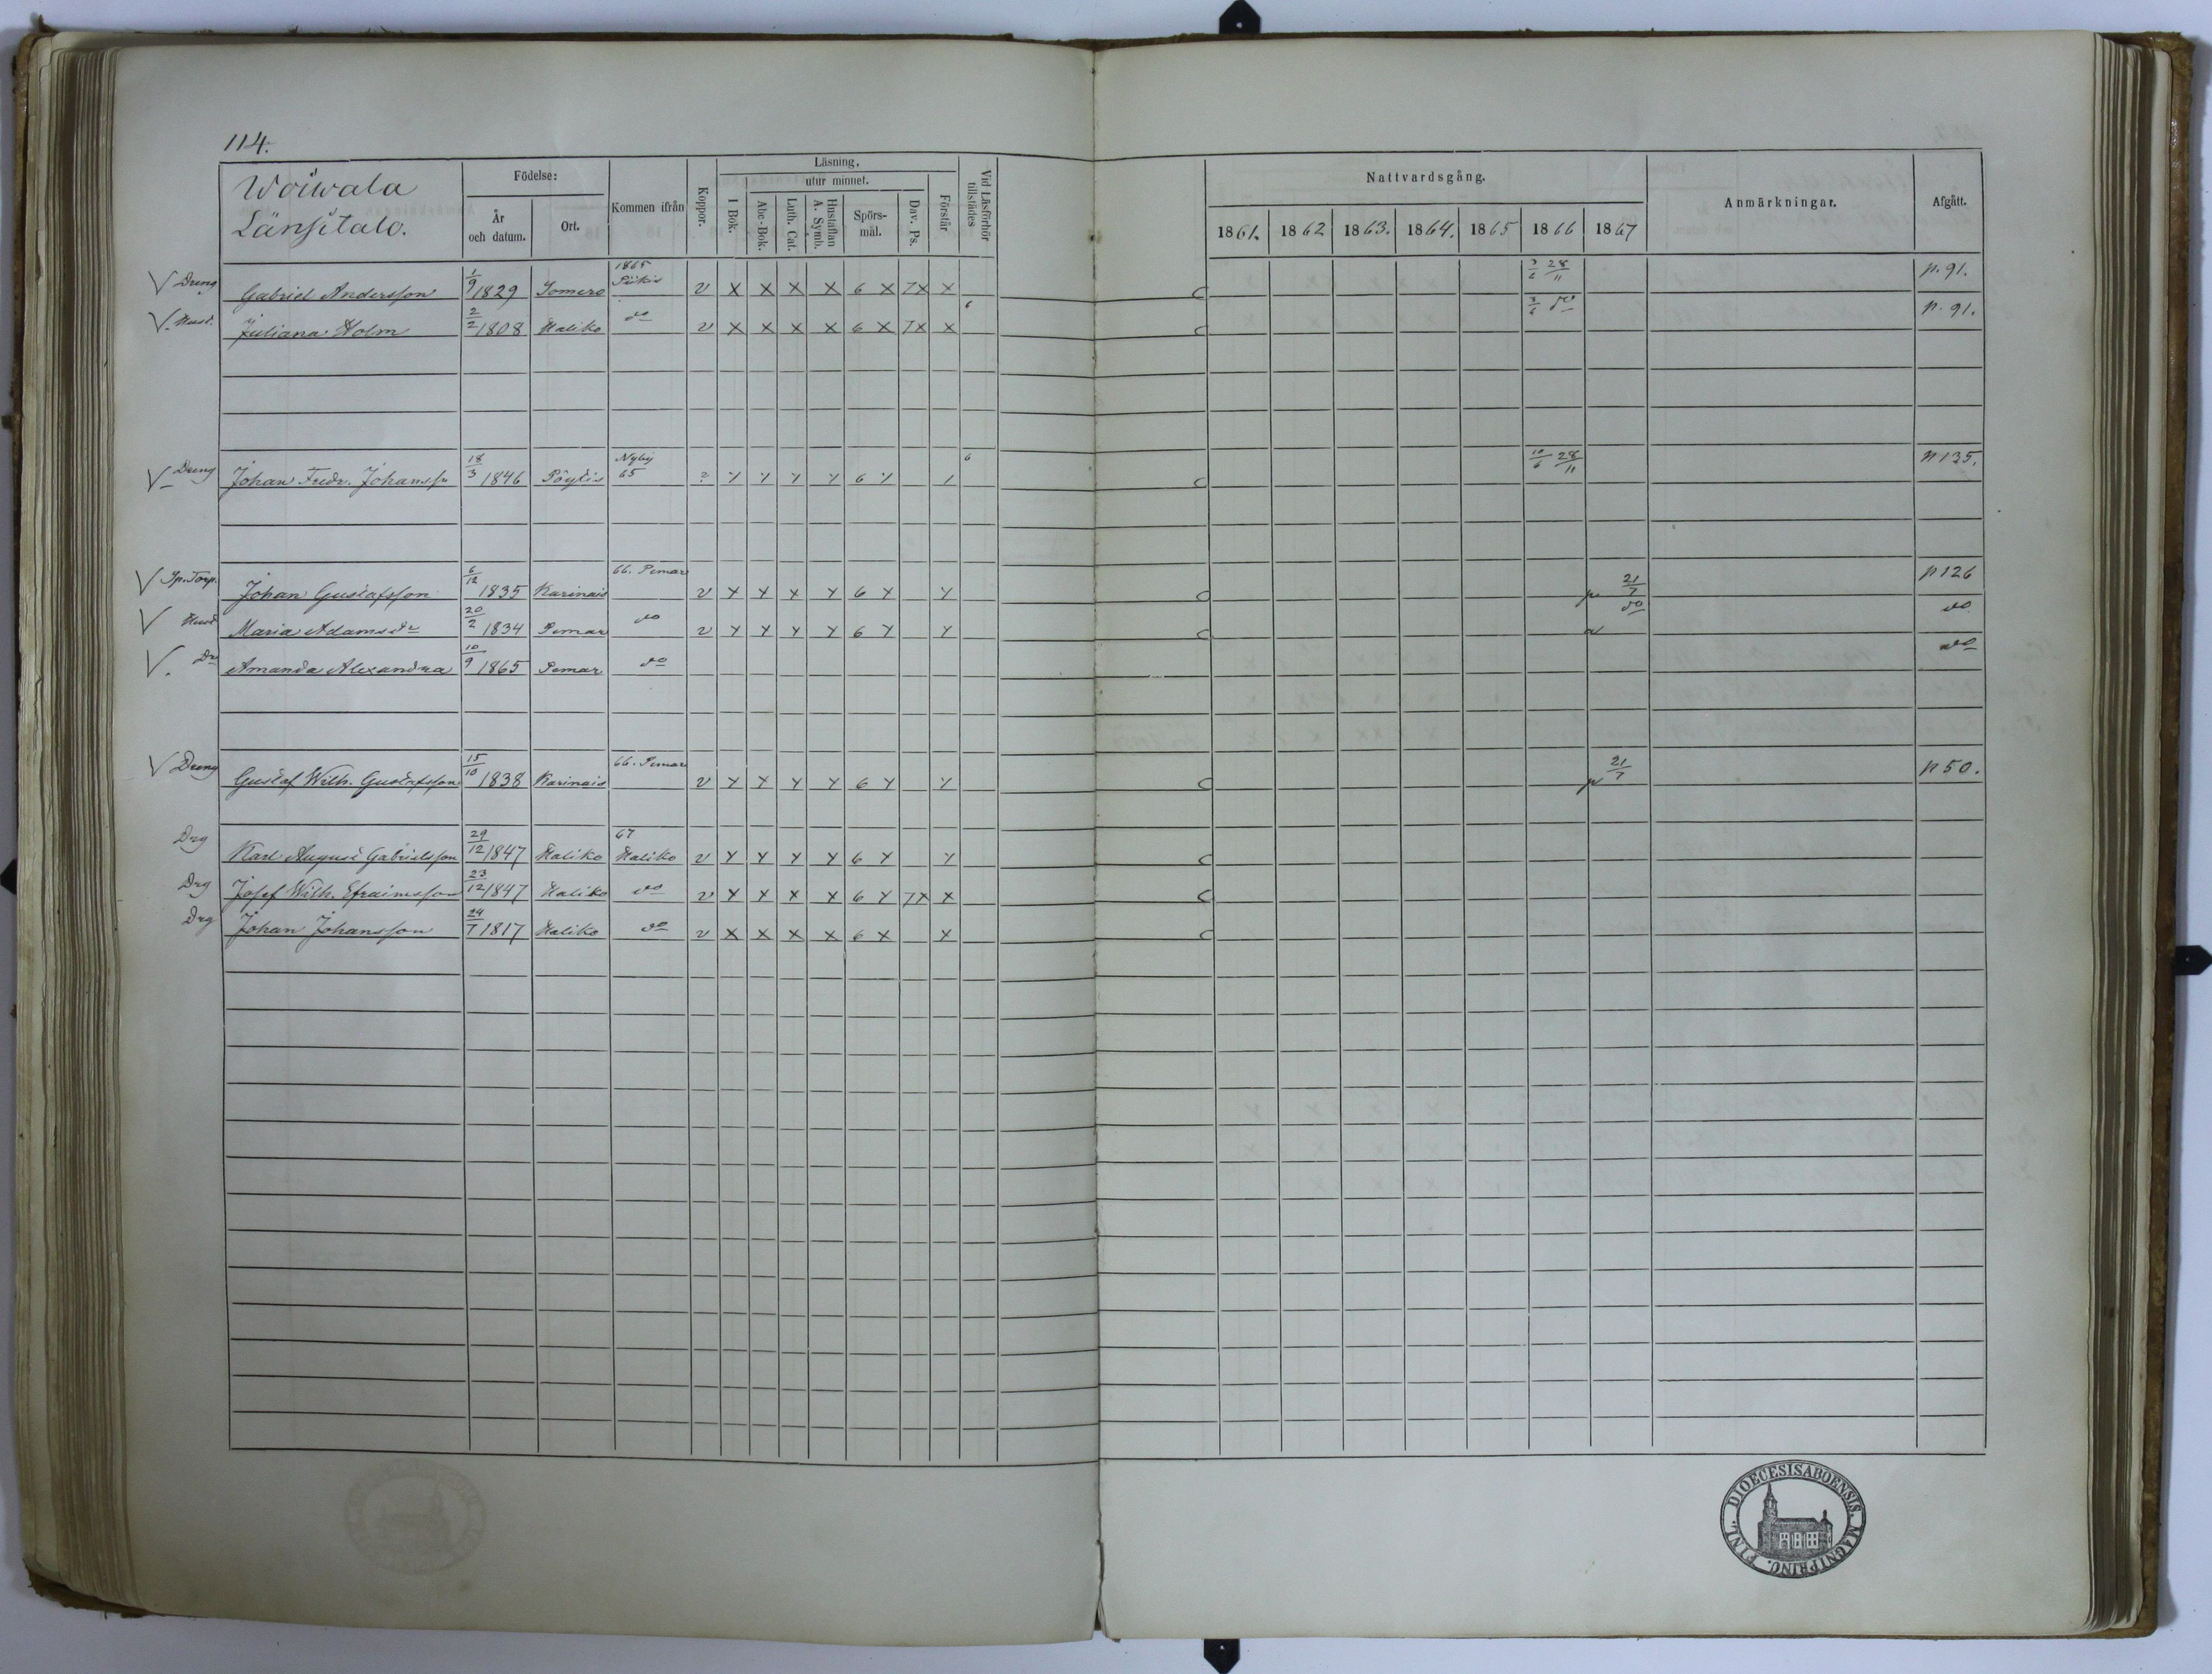 114.
Woiwala
Länsitalo.
Födelse:
År och datum.
Ort.
Kommen ifrån
Koppor.
Läsning.
I Bok.
utur minnet.
Abc-Bok.
Luth. Cat.
Hustaflan A. Symb.
Spörs-mål.
Dav. Ps.
Förstår
Vid Läsförhör tillstädes
Nattvardsgång.
1861. 1862 1863. 1864. 1865 1866 1867
Anmärkningar.
Afgått.
V Dreng Gabriel Andersson 1/9 1829 Somero 1865 Piikis v x x x x 6 x 7x x c 3/6 28/11 p. 91.
V. Hust. Juliana Holm 2/2 1808 Haliko do v x x x x 6 x 7x x 6 c 3/6 do p. 91.
V Dreng Johan Fredr. Johansss 18/3 1846 Pöytis Nyby 65 ? y y y y 6 y / 6 c 10/6 28/11 p 135.
V Sp. Torp. Johan Gustafsson 6/12 1835 Karinais 66. Pemar v y y x y 6 y y c p 21/7 p 126
V Hust Maria Adamsdr 20/2 1834 Pemar do v y y y y 6 y y c do do
V. Dr Amanda Alexandra 10/9 1865 Pemar do do
V Dreng Gustaf Wilh. Gustafsson 15/10 1838 Karinais 66. Pemar v y y y y 6 y y c p 21/7 p 50.
Drg Karl August Gabrielsson 29/12 1847 Haliko 67 Haliko v y y y y 6 y y c
Drg Josef Wilh. Efraimsson 23/12 1847 Haliko do v x x x x 6 y 7x x c
Drg Johan Johansson 24/7 1817 Haliko do v x x x x 6 x x c
DIOECESIS ABOENSIS. MAGNI PRINC. FINL.